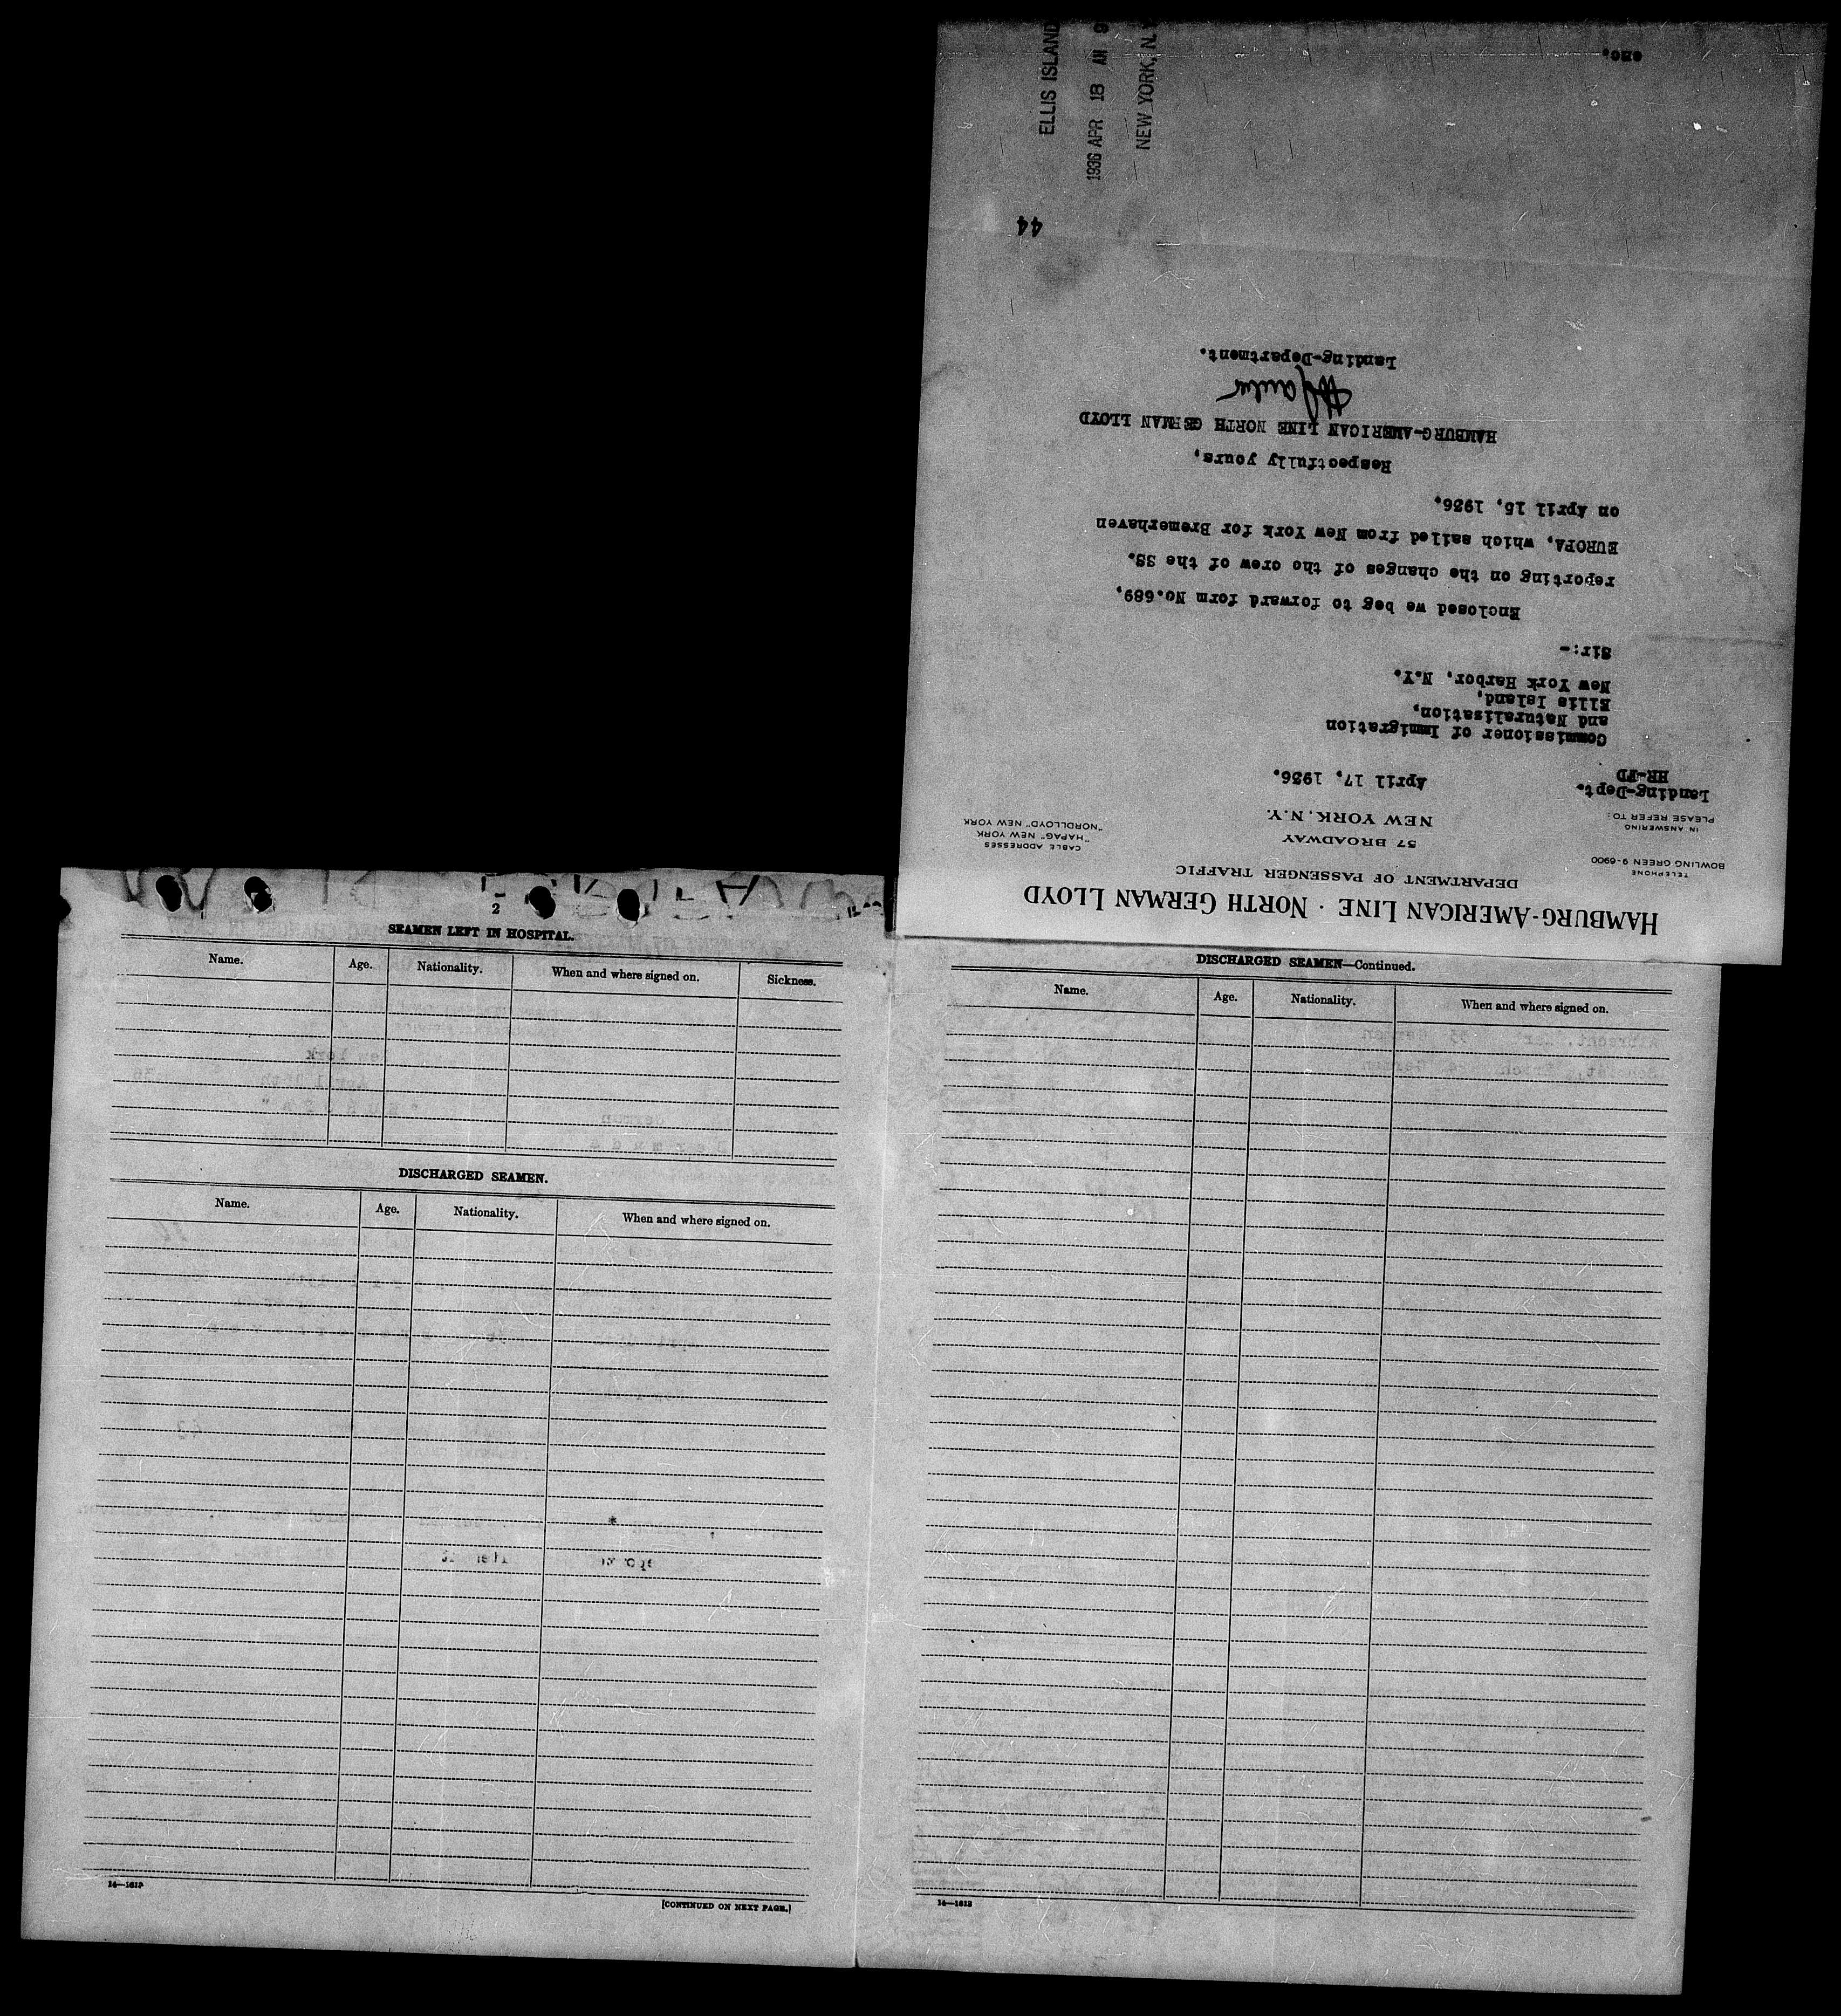 HAMBURG-AMERICAN LINE · NORTH GERMAN LLOYD
DEPARTMENT OF PASSENGER TRAFFIC
57 BROADWAY
NEW YORK, N.Y.
TELEPHONE
BOWLING GREEN 9-6900
IN ANSWERING
PLEASE REFER TO:
Landing-Dept.
HR-FD
CABLE ADDRESSES
"HAPAG" NEW YORK
"NORDLLOYD" NEW YORK
April 17, 1936.
Commissioner of Immigration
and Naturalisation,
Ellis Island,
New York Harbor, N.Y.
Sir:-
Enclosed we beg to forward form No.689,
reporting on the changes of the crew of the SS.
EUROPA, which sailed from New York for Bremerhaven
on April 15, 1936.
Respectfully yours,
HAMBURG-AMERICAN LINE NORTH GERMAN LLOYD
Landing-Department.
44
ELLIS ISLAND
1936 APR 18 AM 9
NEW YORK, N.
enc.
2
SEAMEN LEFT IN HOSPITAL.
Name. Age. Nationality. When and where signed on. Sickness.
DISCHARGED SEAMEN.
Name. Age. Nationality. When and where signed on.
14—1613
[CONTINUED ON NEXT PAGE.]
DISCHARGED SEAMEN—Continued.
Name. Age. Nationality. When and where signed on.
14—1613